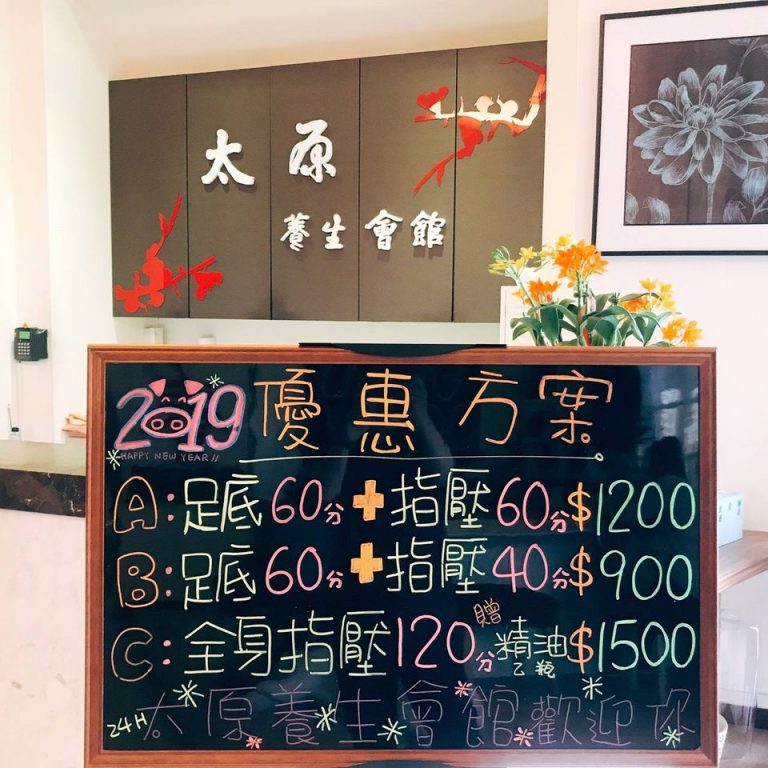 太原
養生會館
2019 優惠方案
HAPPY NEW YEAR!!
A:足底60分+指壓60分$1200
B:足底60分+指壓40分$900
C:全身指壓120分贈精油乙瓶$1500
24H太原養生會館歡迎你